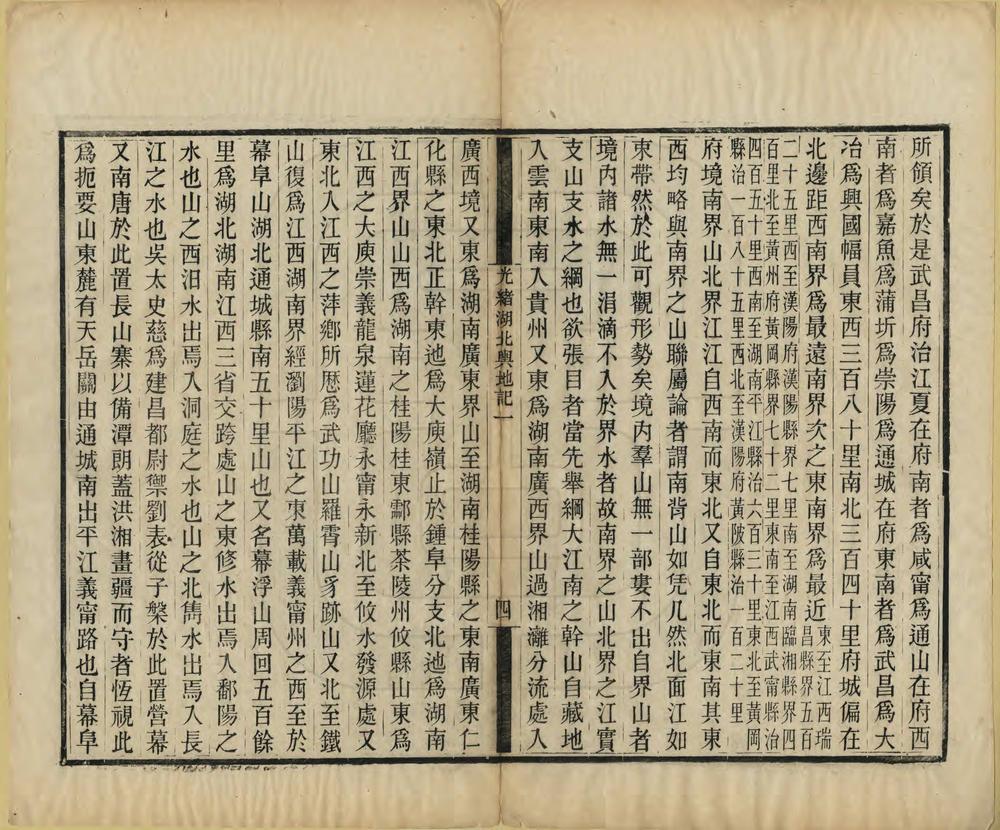 所領矣於是武昌府治江夏在府南者爲咸甯爲通山在府西
南者爲嘉魚爲蒲圻爲崇陽爲通城在府東南者爲武昌爲大
冶爲興國幅員東西三百八十里南北三百四十里府城偏在
北邊距西南界爲最遠南界次之東南界爲最近東至江西瑞昌縣界五百
二十五里西至漢陽府漢陽縣界七里南至湖南臨湘縣界四
百里北至黃州府黃岡縣界七十二里東南至江西武甯縣治
四百五十里西南至湖南平江縣治六百三十里東北至黃岡
縣治一百八十五里西北至漢陽府黃陂縣治一百二十里
府境南界山北界江江自西南而東北又自東北而東南其東
西均略與南界之山聯屬論者謂南背山如凭几然北面江如
束帶然於此可觀形勢矣境内羣山無一部婁不出自界山者
境内諸水無一涓滴不入於界水者故南界之山北界之江實
支山支水之綱也欲張目者當先舉綱大江南之幹山自藏地
入雲南東南入貴州又東爲湖南廣西界山過湘灕分流處入
光緒湖北輿地記一
四
廣西境又東爲湖南廣東界山至湖南桂陽縣之東南廣東仁
化縣之東北正幹東迆爲大庾嶺止於鍾阜分支北迆爲湖南
江西界山山西爲湖南之桂陽桂東酃縣茶陵州攸縣山東爲
江西之大庾崇義龍泉蓮花廳永甯永新北至攸水發源處又
東北入江西之萍鄉所厯爲武功山羅霄山豸跡山又北至鐵
山復爲江西湖南界經瀏陽平江之東萬載義甯州之西至於
幕阜山湖北通城縣南五十里山也又名幕浮山周回五百餘
里爲湖北湖南江西三省交跨處山之東修水出焉入鄱陽之
水也山之西汨水出焉入洞庭之水也山之北雋水出焉入長
江之水也吳太史慈爲建昌都尉禦劉表從子磐於此置營幕
又南唐於此置長山寨以備潭朗蓋洪湘畫疆而守者恆視此
爲扼要山東麓有天岳關由通城南出平江義甯路也自幕阜